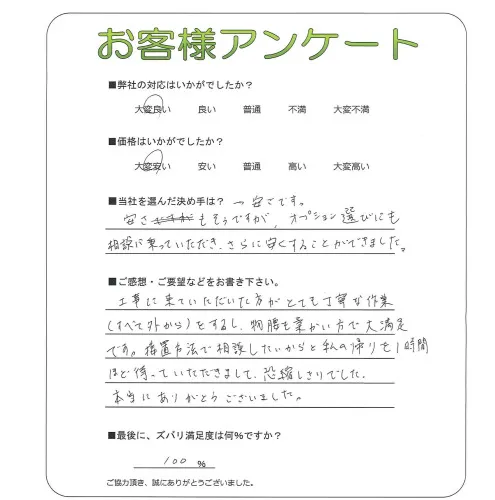 お客様アンケート
■弊社の対応はいかがでしたか？
大変良い 良い 普通 不満 大変不満
■価格はいかがでしたか？
大変安い 安い 普通 高い 大変高い
■当社を選んだ決め手は？ →安さです。
安さ もそうですが、オプション選びにも
相談に乗っていただき、さらに安くすることができました。
■ご感想・ご要望などをお書き下さい。
工事に来ていただいた方がとても丁寧な作業
(すべて外から)をするし、物腰も柔かい方で大満足
です。措置方法で相談したいからと私の帰りも1時間
ほど待っていただきまして、恐縮しきりでした。
本当にありがとうございました。
■最後に、ズバリ満足度は何％ですか？
100 ％
ご協力頂き、誠にありがとうございました。